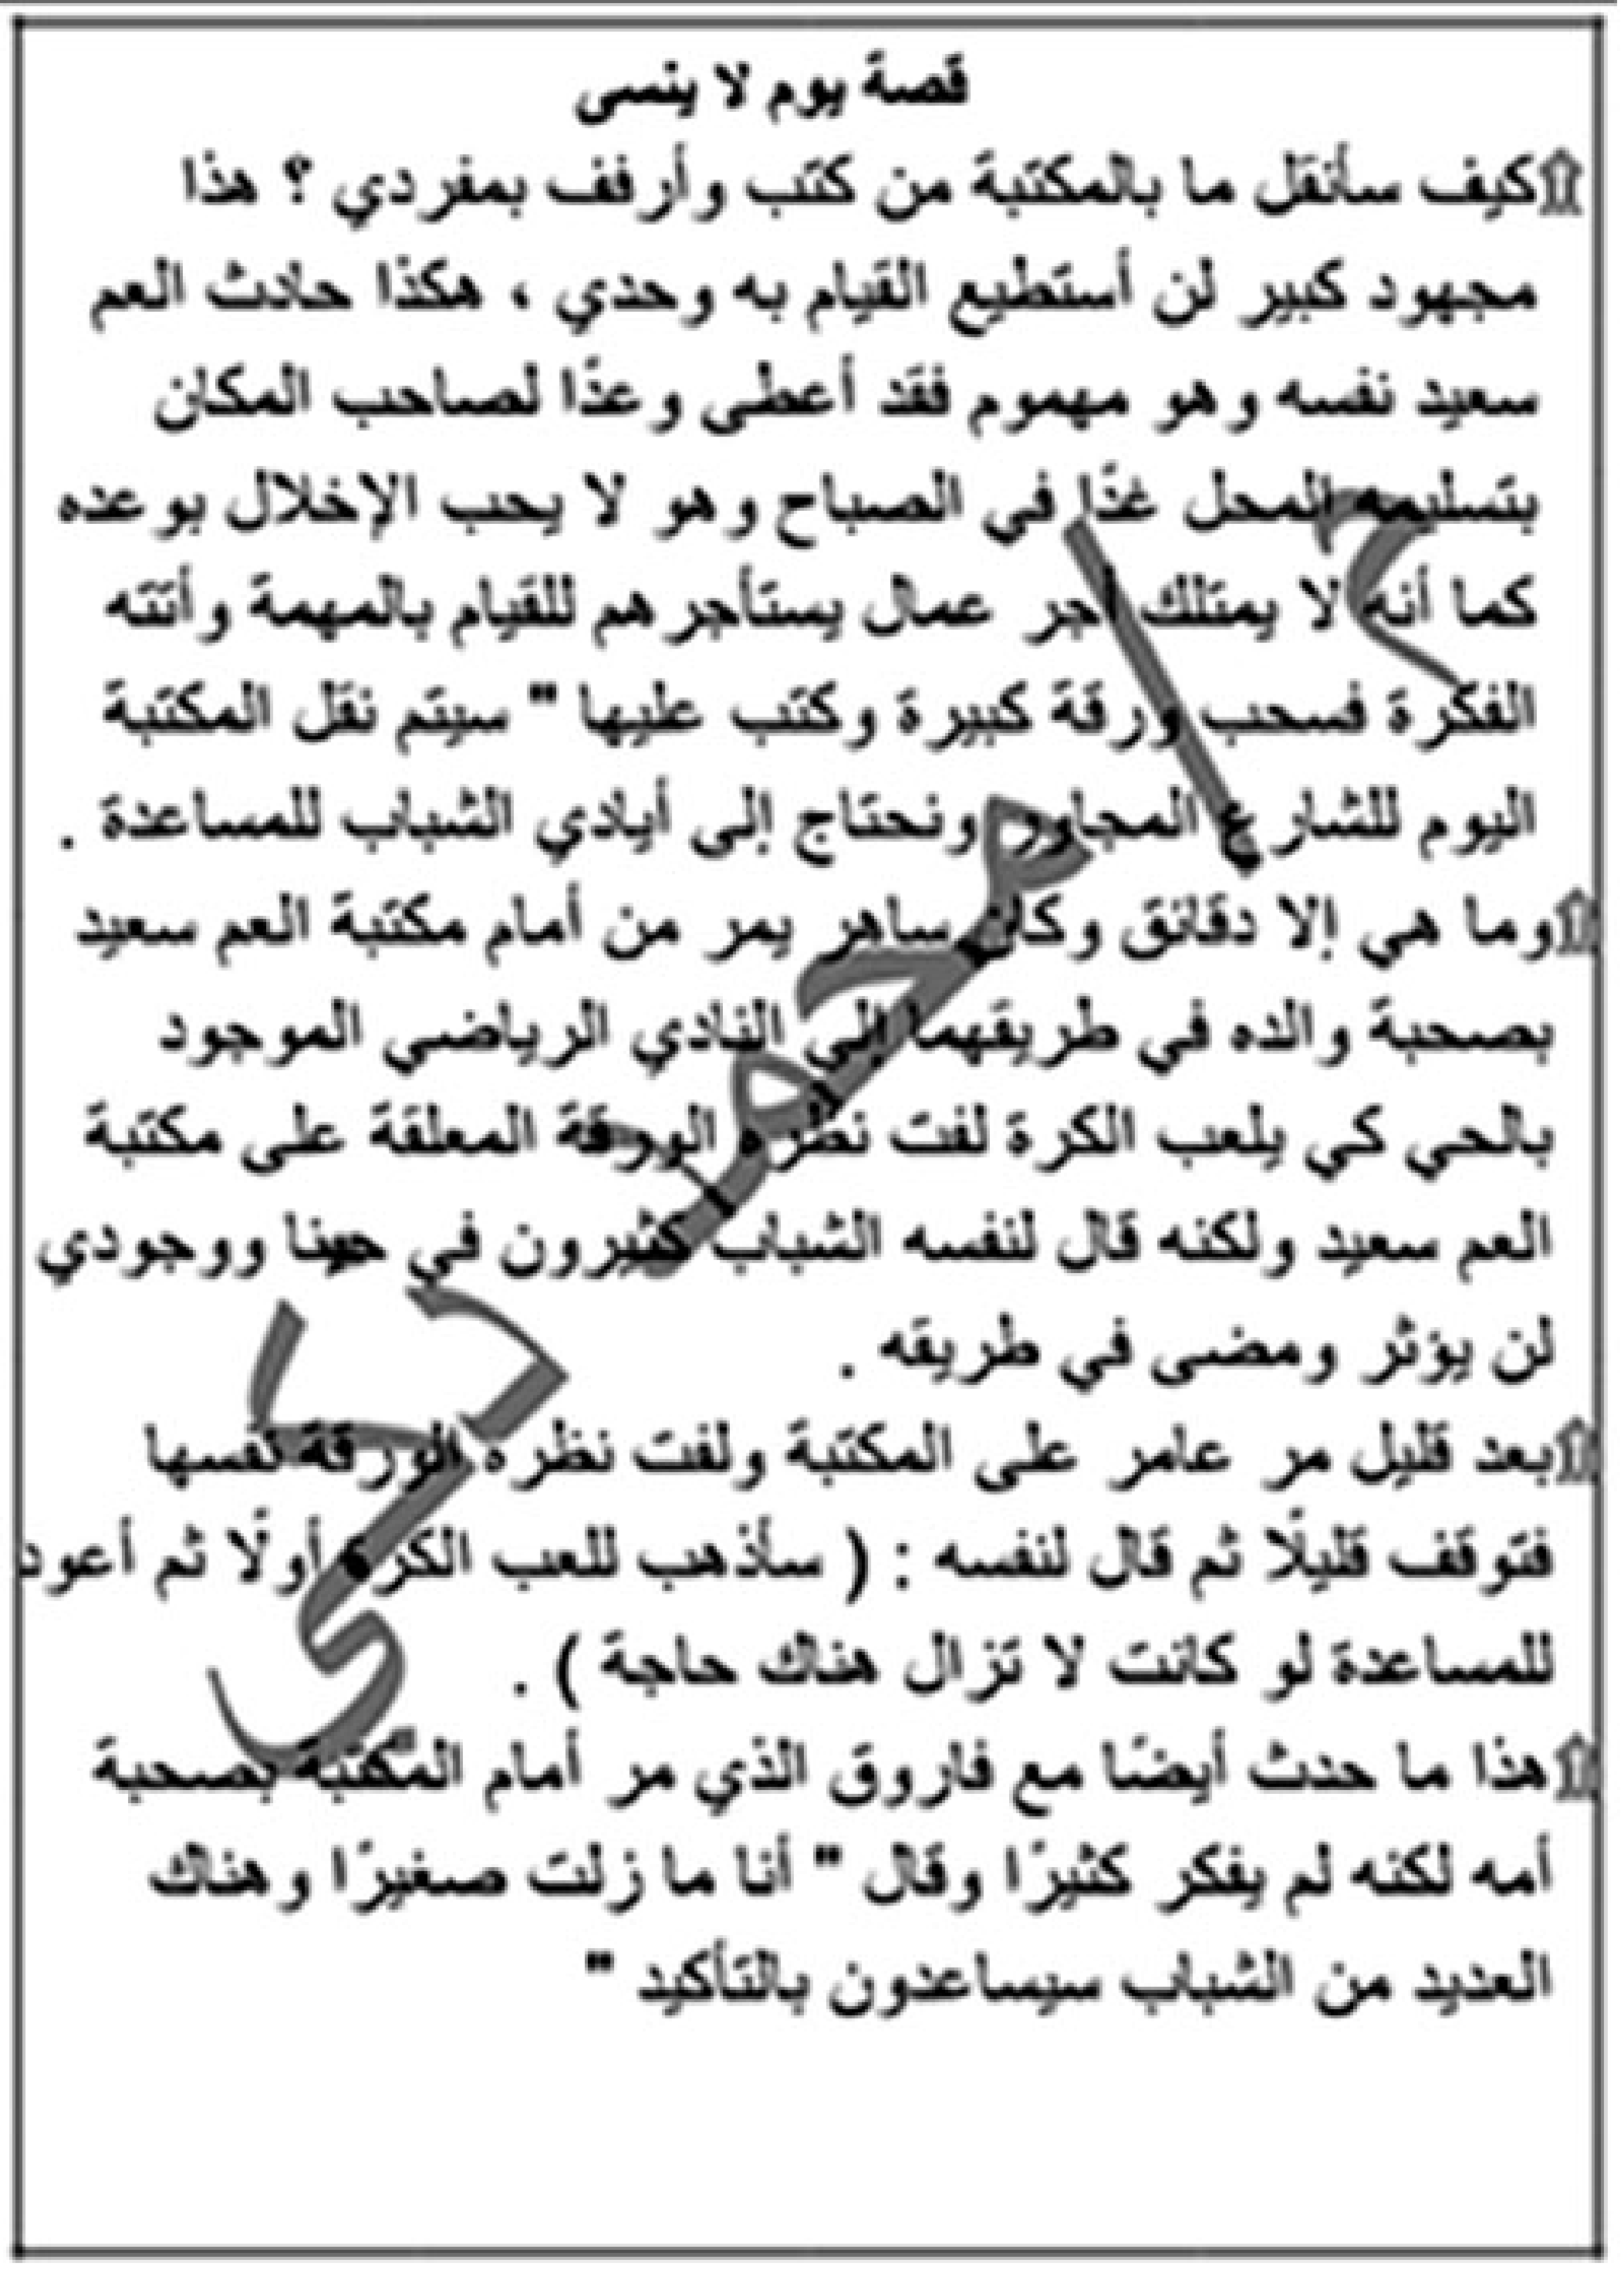 قصة يوم لا ينسى
كيف سأنقل ما بالمكتبة من كتب وأرفف بمفردي ؟ هذا
مجهود كبير لن أستطيع القيام به وحدي ، هكذا حادث العم
سعيد نفسه وهو مهموم فقد أعطى وعدًا لصاحب المكان
بتسليمه المحل غدًا في الصباح وهو لا يحب الإخلال بوعده
كما أنه لا يمتلك أجر عمال يستأجرهم للقيام بالمهمة وأتته
الفكرة فسحب ورقة كبيرة وكتب عليها " سيتم نقل المكتبة
اليوم للشارع المجاور ونحتاج إلى أيادي الشباب للمساعدة .
وما هي إلا دقائق وكان ساهر يمر من أمام مكتبة العم سعيد
بصحبة والده في طريقهما إلى النادي الرياضي الموجود
بالحي كي يلعب الكرة لفت نظره الورقة المعلقة على مكتبة
العم سعيد ولكنه قال لنفسه الشباب كثيرون في حينا ووجودي
لن يؤثر ومضى في طريقه .
بعد قليل مر عامر على المكتبة ولفت نظره الورقة نفسها
فتوقف قليلًا ثم قال لنفسه : ( سأذهب للعب الكرة أولًا ثم أعود
للمساعدة لو كانت لا تزال هناك حاجة ) .
هذا ما حدث أيضًا مع فاروق الذي مر أمام المكتبة بصحبة
أمه لكنه لم يفكر كثيرًا وقال " أنا ما زلت صغيرًا وهناك
العديد من الشباب سيساعدون بالتأكيد "